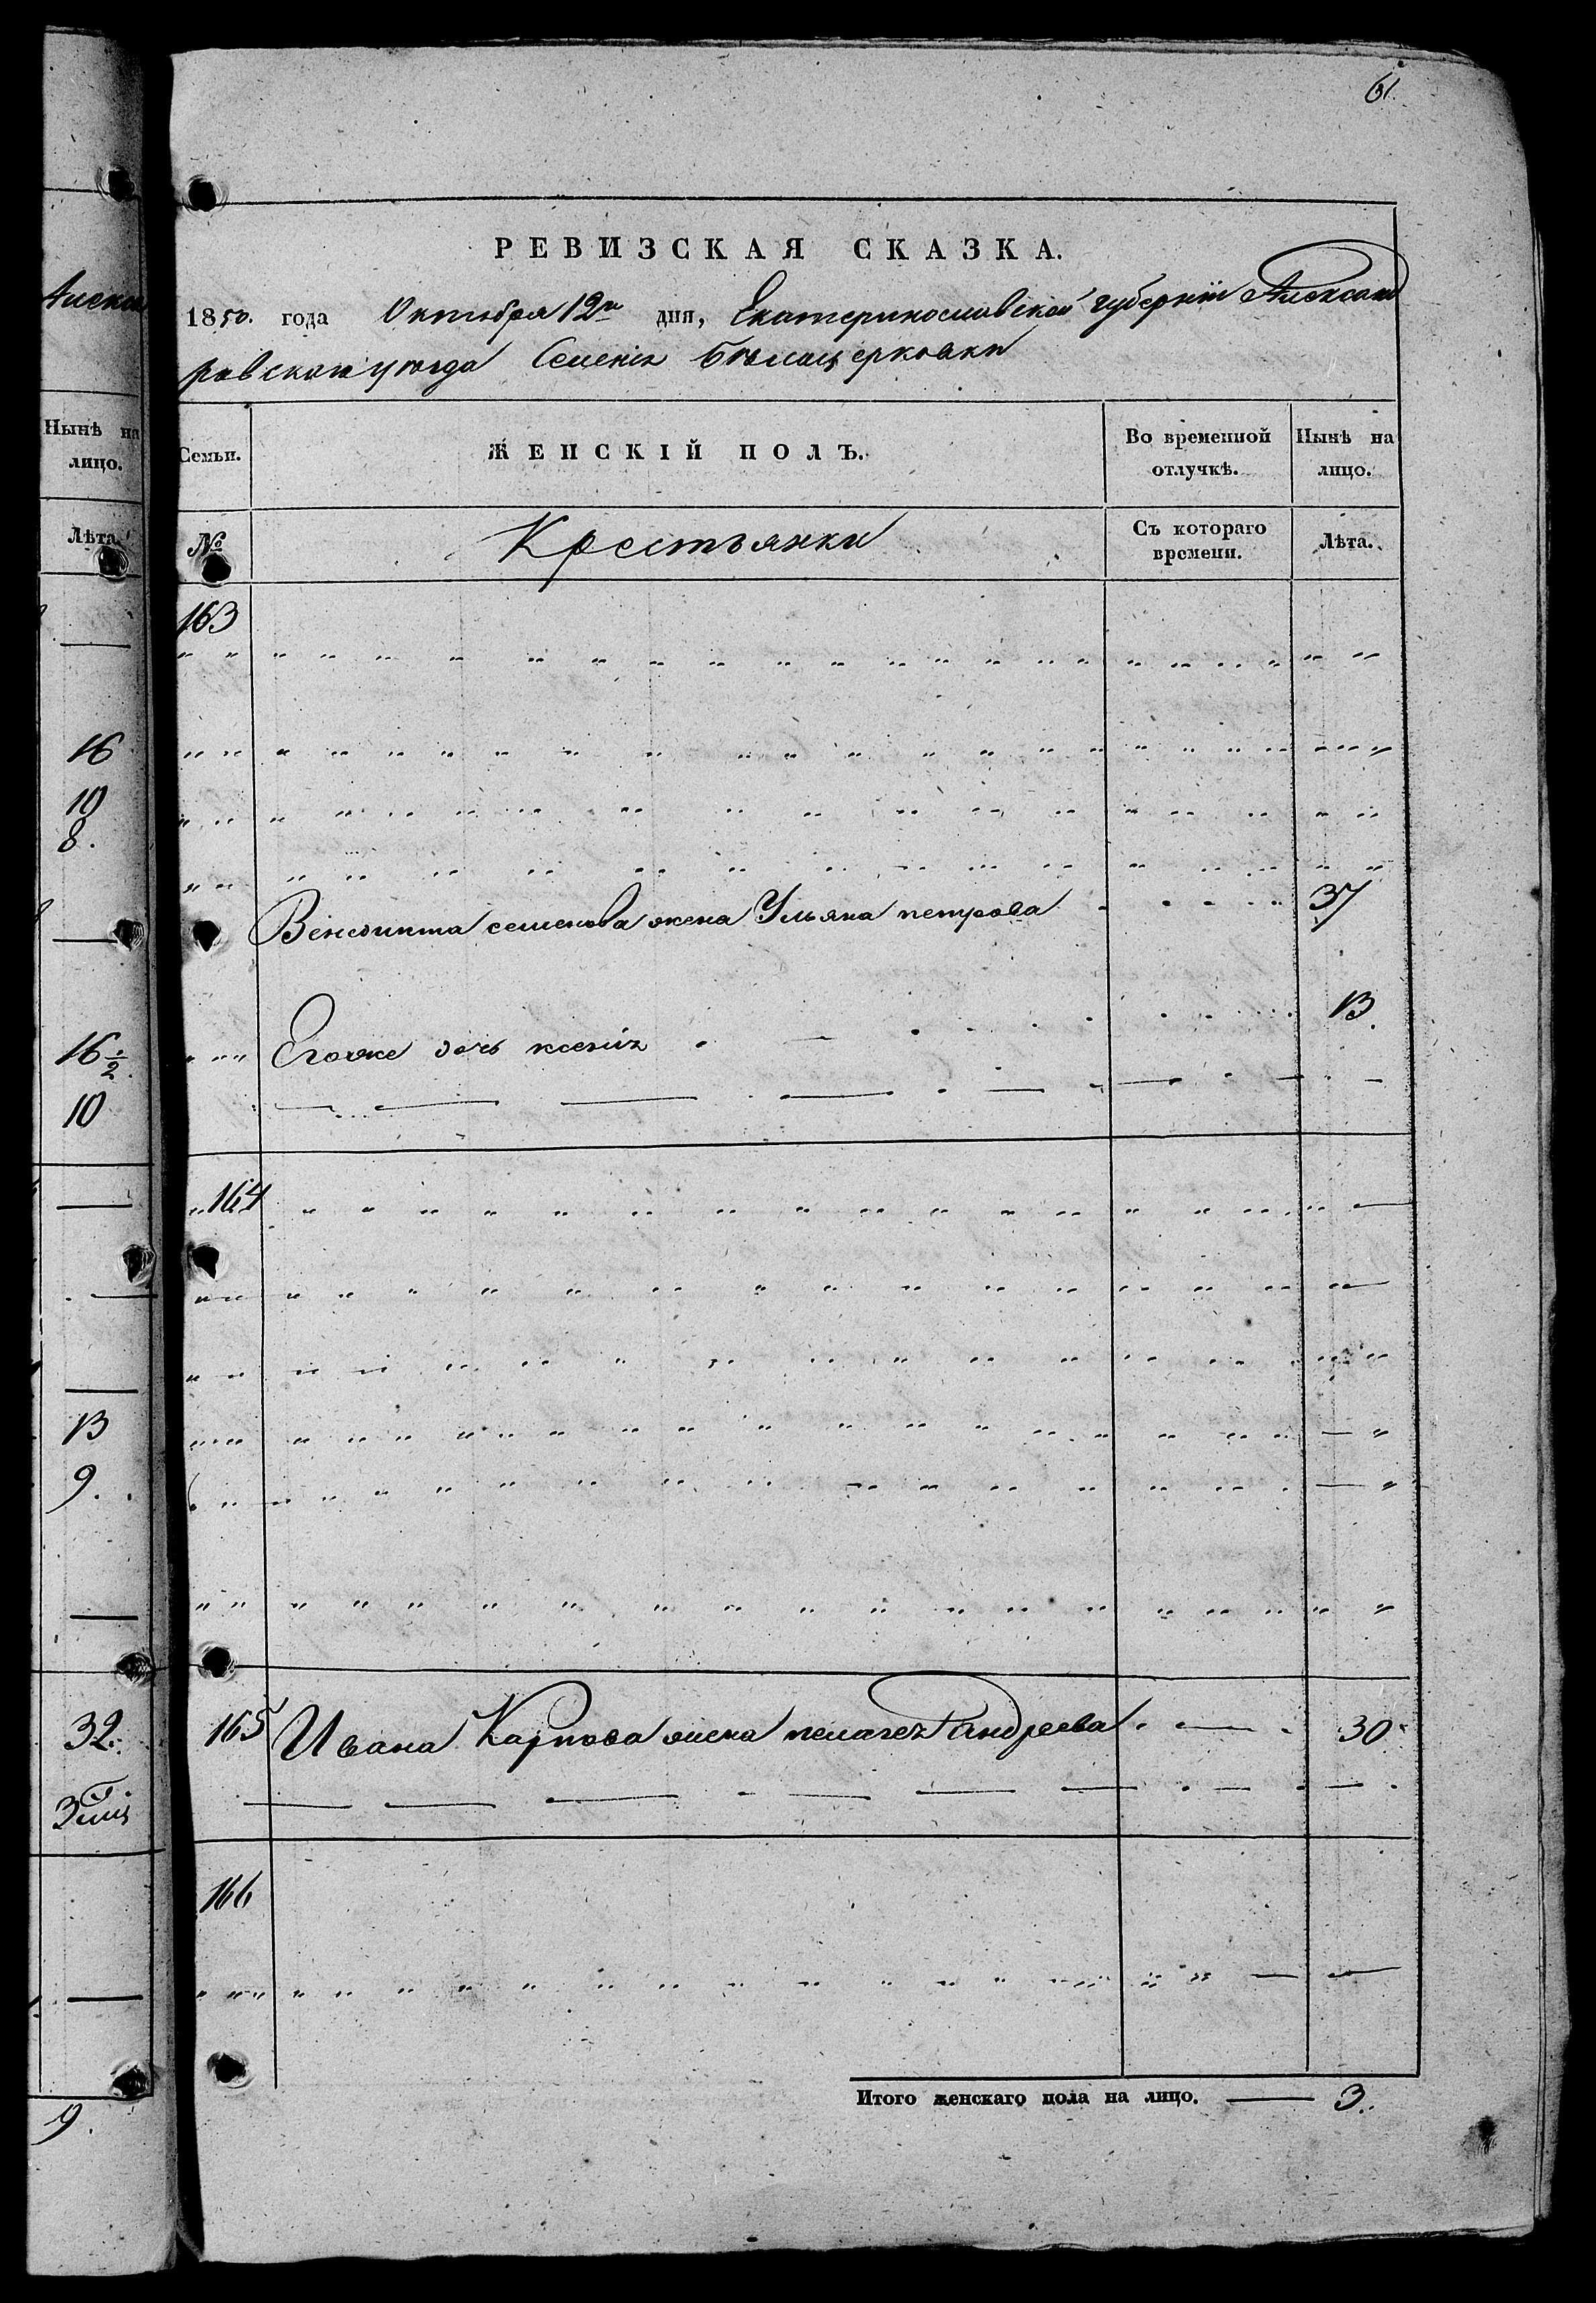 61.
Алекса
Нынѣ на
лицо.
Лѣта.
16
10
8.
16 1/2
10
13
9.
32.
9.
РЕВИЗСКАЯ СКАЗКА.
1850. года Октября 12го дня, Екатеринославской губерніи Александ
ровского уезда Селенія Бѣлоцерковки
Семьи. ЖЕНСКІЙ ПОЛЪ. Во временной отлучкѣ. Нынѣ на лицо.
№ Крестьянки Съ котораго времени. Лѣта.
163
Венедикта семенова жена Ульяна петрова 37
Егоже дочь ксенія 13.
164
165 Ивана Карпова жена пелагея андреева 30
166
Итого женскаго пола на лицо. 3.